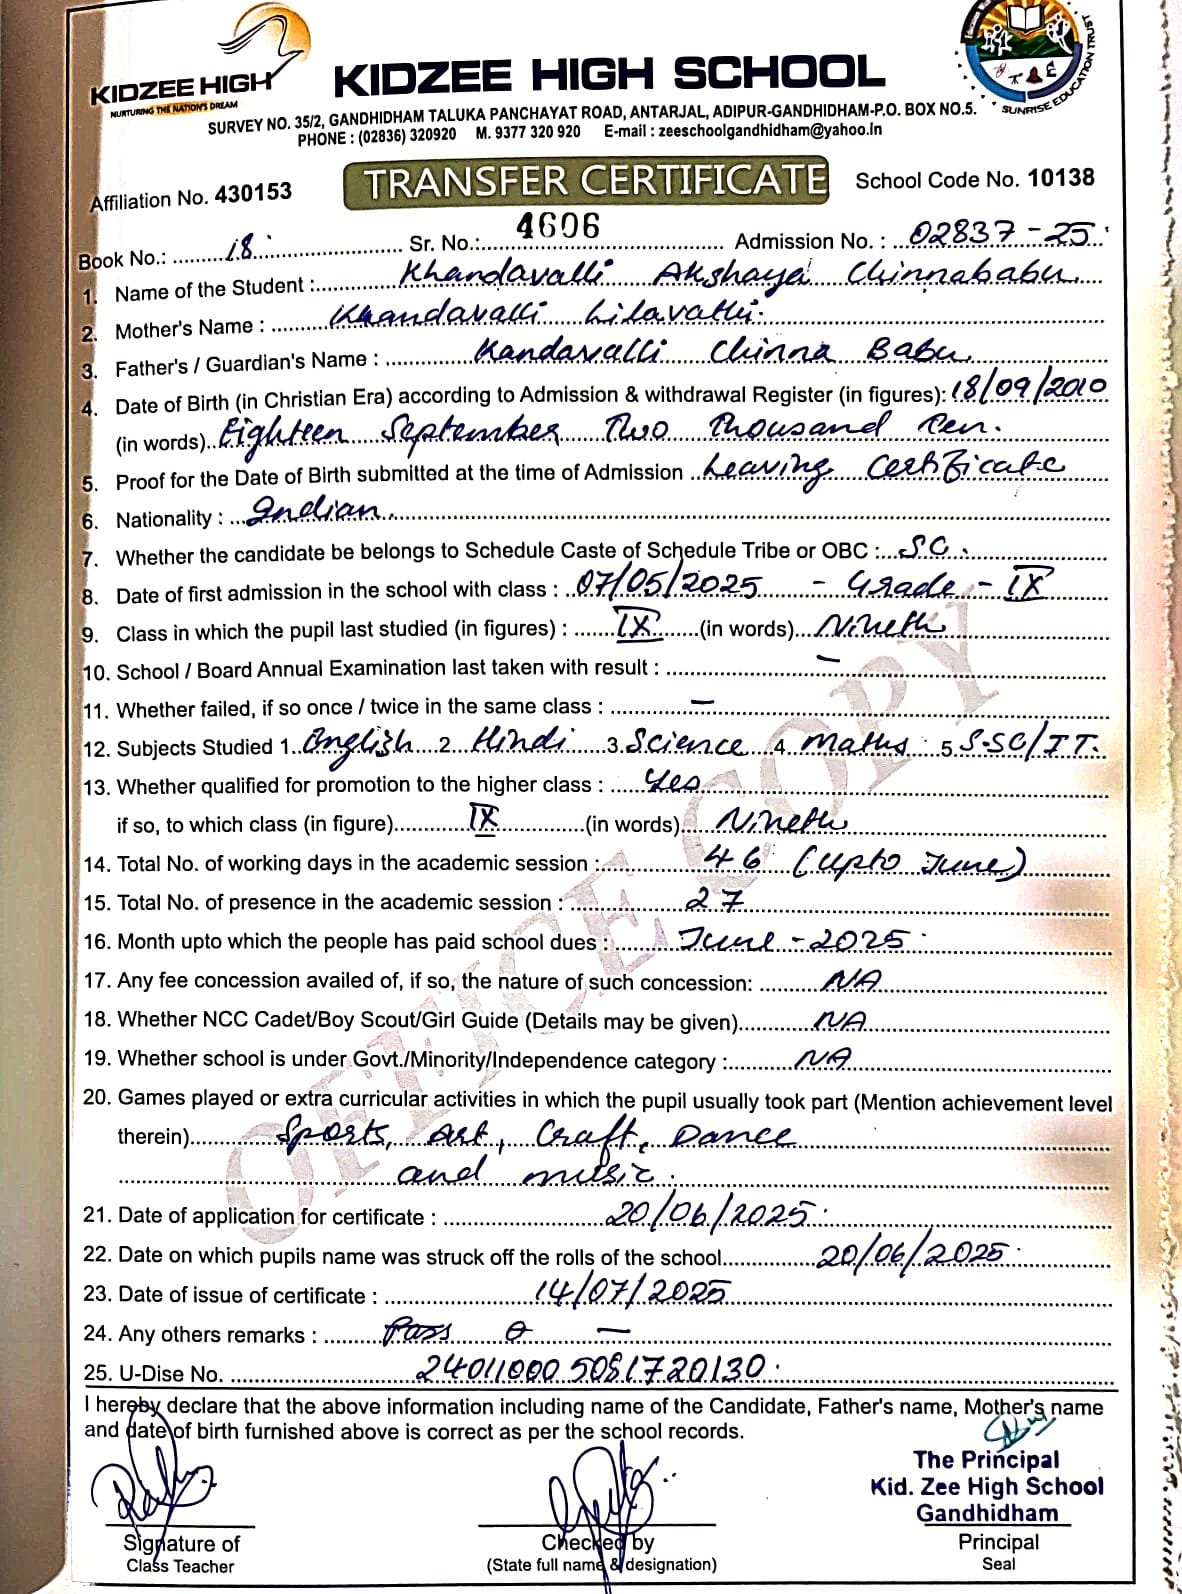 KIDZEE HIGH
NURTURING THE NATION'S DREAM
KIDZEE HIGH SCHOOL
SUNRISE EDUCATION TRUST
SURVEY NO. 35/2, GANDHIDHAM TALUKA PANCHAYAT ROAD, ANTARJAL, ADIPUR-GANDHIDHAM-P.O. BOX NO.5.
PHONE : (02836) 320920 M. 9377 320 920 E-mail : zeeschoolgandhidham@yahoo.in
Affiliation No. 430153 TRANSFER CERTIFICATE School Code No. 10138
Book No.: 18 Sr. No.: 4606 Admission No. : 02837-25
1. Name of the Student : Khandavalli Akshaya Chinnababu
2. Mother's Name : Khandavalli Lilavathi.
3. Father's / Guardian's Name : Kandavalli Chinna Babu.
4. Date of Birth (in Christian Era) according to Admission & withdrawal Register (in figures): 18/09/2010
(in words) Eighteen September Two Thousand Ten.
5. Proof for the Date of Birth submitted at the time of Admission Leaving Certificate
6. Nationality : Indian.
7. Whether the candidate be belongs to Schedule Caste of Schedule Tribe or OBC : SC.
8. Date of first admission in the school with class : 07/05/2025 - Grade - IX
9. Class in which the pupil last studied (in figures) : IX (in words) Nineth
10. School / Board Annual Examination last taken with result : -
11. Whether failed, if so once / twice in the same class : -
12. Subjects Studied 1. English 2. Hindi 3. Science 4. Maths 5. S.SC/IT.
13. Whether qualified for promotion to the higher class : Yes
if so, to which class (in figure) IX (in words) Nineth
14. Total No. of working days in the academic session : 46 (upto June)
15. Total No. of presence in the academic session : 27
16. Month upto which the people has paid school dues : June - 2025
17. Any fee concession availed of, if so, the nature of such concession: NA
18. Whether NCC Cadet/Boy Scout/Girl Guide (Details may be given) NA
19. Whether school is under Govt./Minority/Independence category : NA
20. Games played or extra curricular activities in which the pupil usually took part (Mention achievement level
therein) Sports, Art, Craft, Dance
and music.
21. Date of application for certificate : 20/06/2025
22. Date on which pupils name was struck off the rolls of the school 20/06/2025
23. Date of issue of certificate : 14/07/2025
24. Any others remarks : -
25. U-Dise No. 240110005081720130
OFFICE COPY
I hereby declare that the above information including name of the Candidate, Father's name, Mother's name
and date of birth furnished above is correct as per the school records.
The Principal
Kid. Zee High School
Gandhidham
Signature of
Class Teacher
Checked by
(State full name & designation)
Principal
Seal